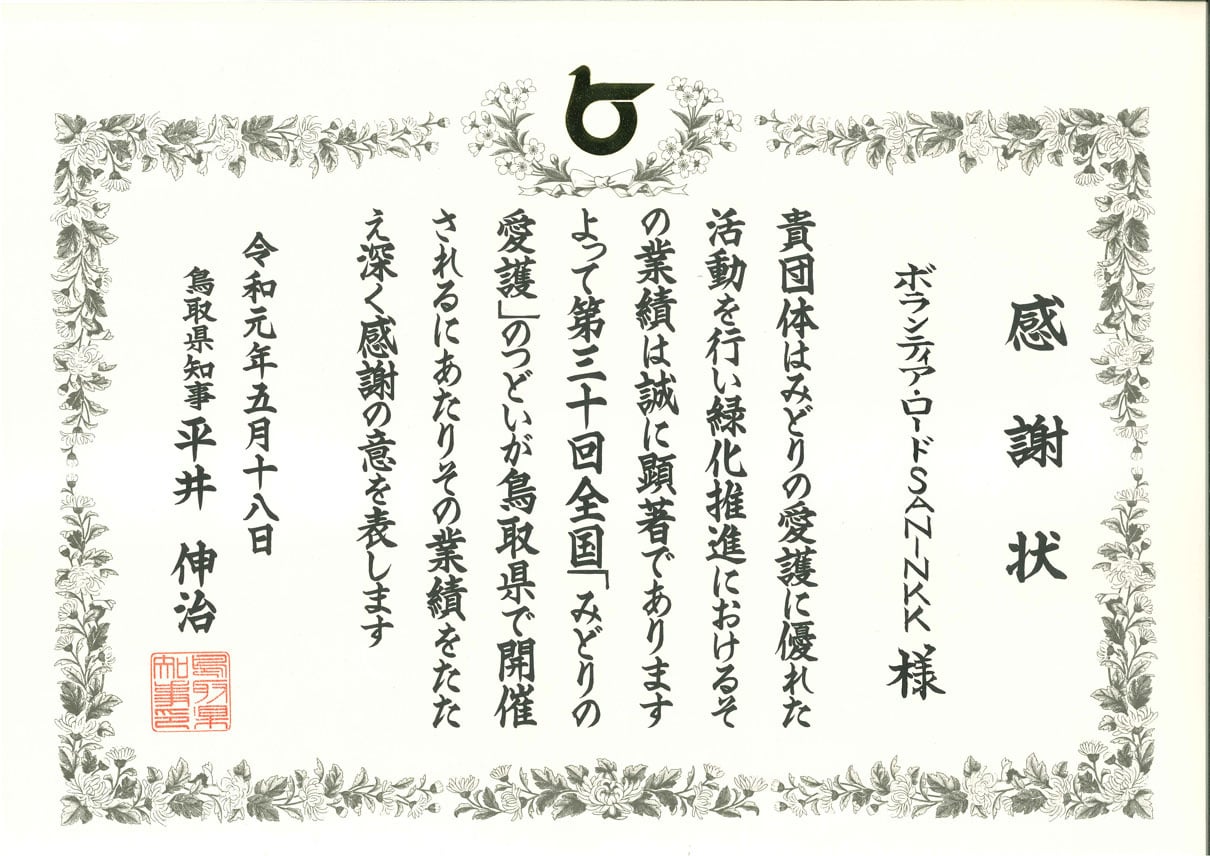 感謝状
ボランティア・ロードSAN-INKK 様
貴団体はみどりの愛護に優れた
活動を行い緑化推進におけるそ
の業績は誠に顕著であります
よって第三十回全国「みどりの
愛護」のつどいが鳥取県で開催
されるにあたりその業績をたた
え深く感謝の意を表します
令和元年五月十八日
鳥取県知事 平井 伸治
鳥取県
知事印